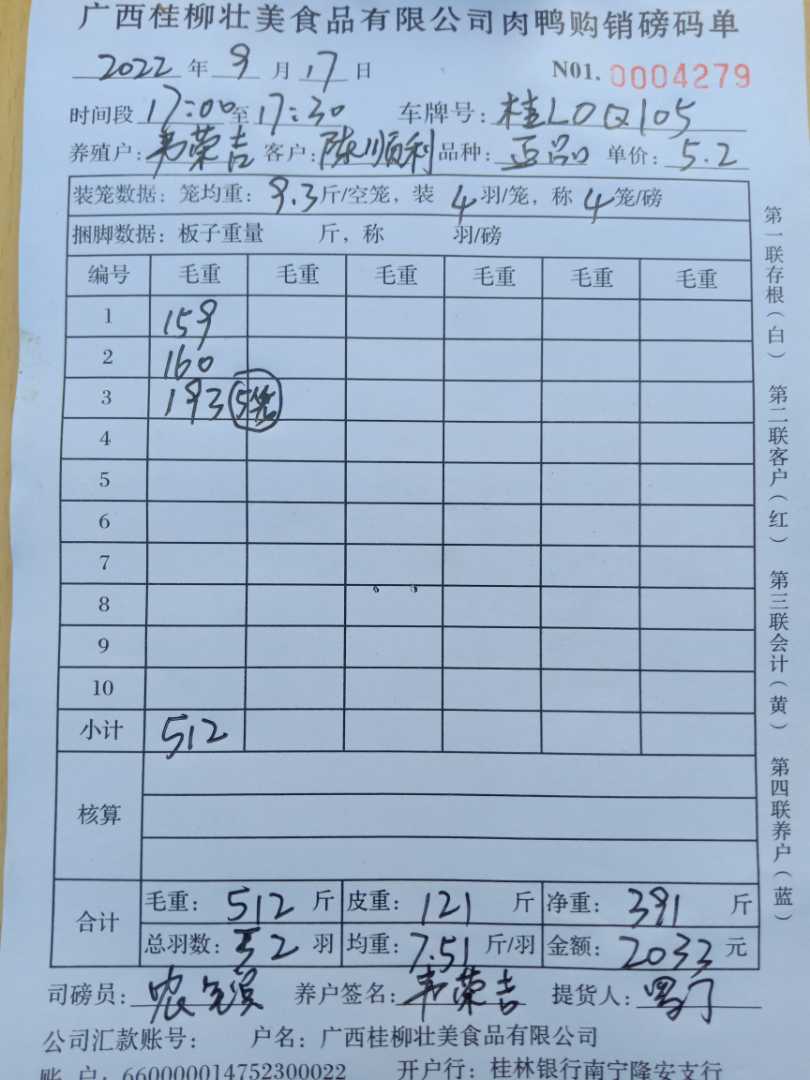 广西桂柳壮美食品有限公司肉鸭购销磅码单
2022 年 9 月 17 日 NO1. 0004279
时间段 17:00 至 17:30 车牌号: 桂L0Q105
养殖户: 韦荣吉 客户: 陈顺利 品种: 正品 单价: 5.2
装笼数据: 笼均重: 9.3 斤/空笼, 装 4 羽/笼, 称 4 笼/磅
捆脚数据: 板子重量 斤, 称 羽/磅
编号 毛重 毛重 毛重 毛重 毛重 毛重
1 159
2 160
3 193 5笼
4
5
6
7
8
9
10
小计 512
核算
合计 毛重: 512 斤 皮重: 121 斤 净重: 391 斤
总羽数: 52 羽 均重: 7.51 斤/羽 金额: 2033 元
司磅员: 养户签名: 韦荣吉 提货人:
公司汇款账号: 户名: 广西桂柳壮美食品有限公司
账 户: 660000014752300022 开户行: 桂林银行南宁隆安支行
第一联存根(白) 第二联客户(红) 第三联会计(黄) 第四联养户(蓝)